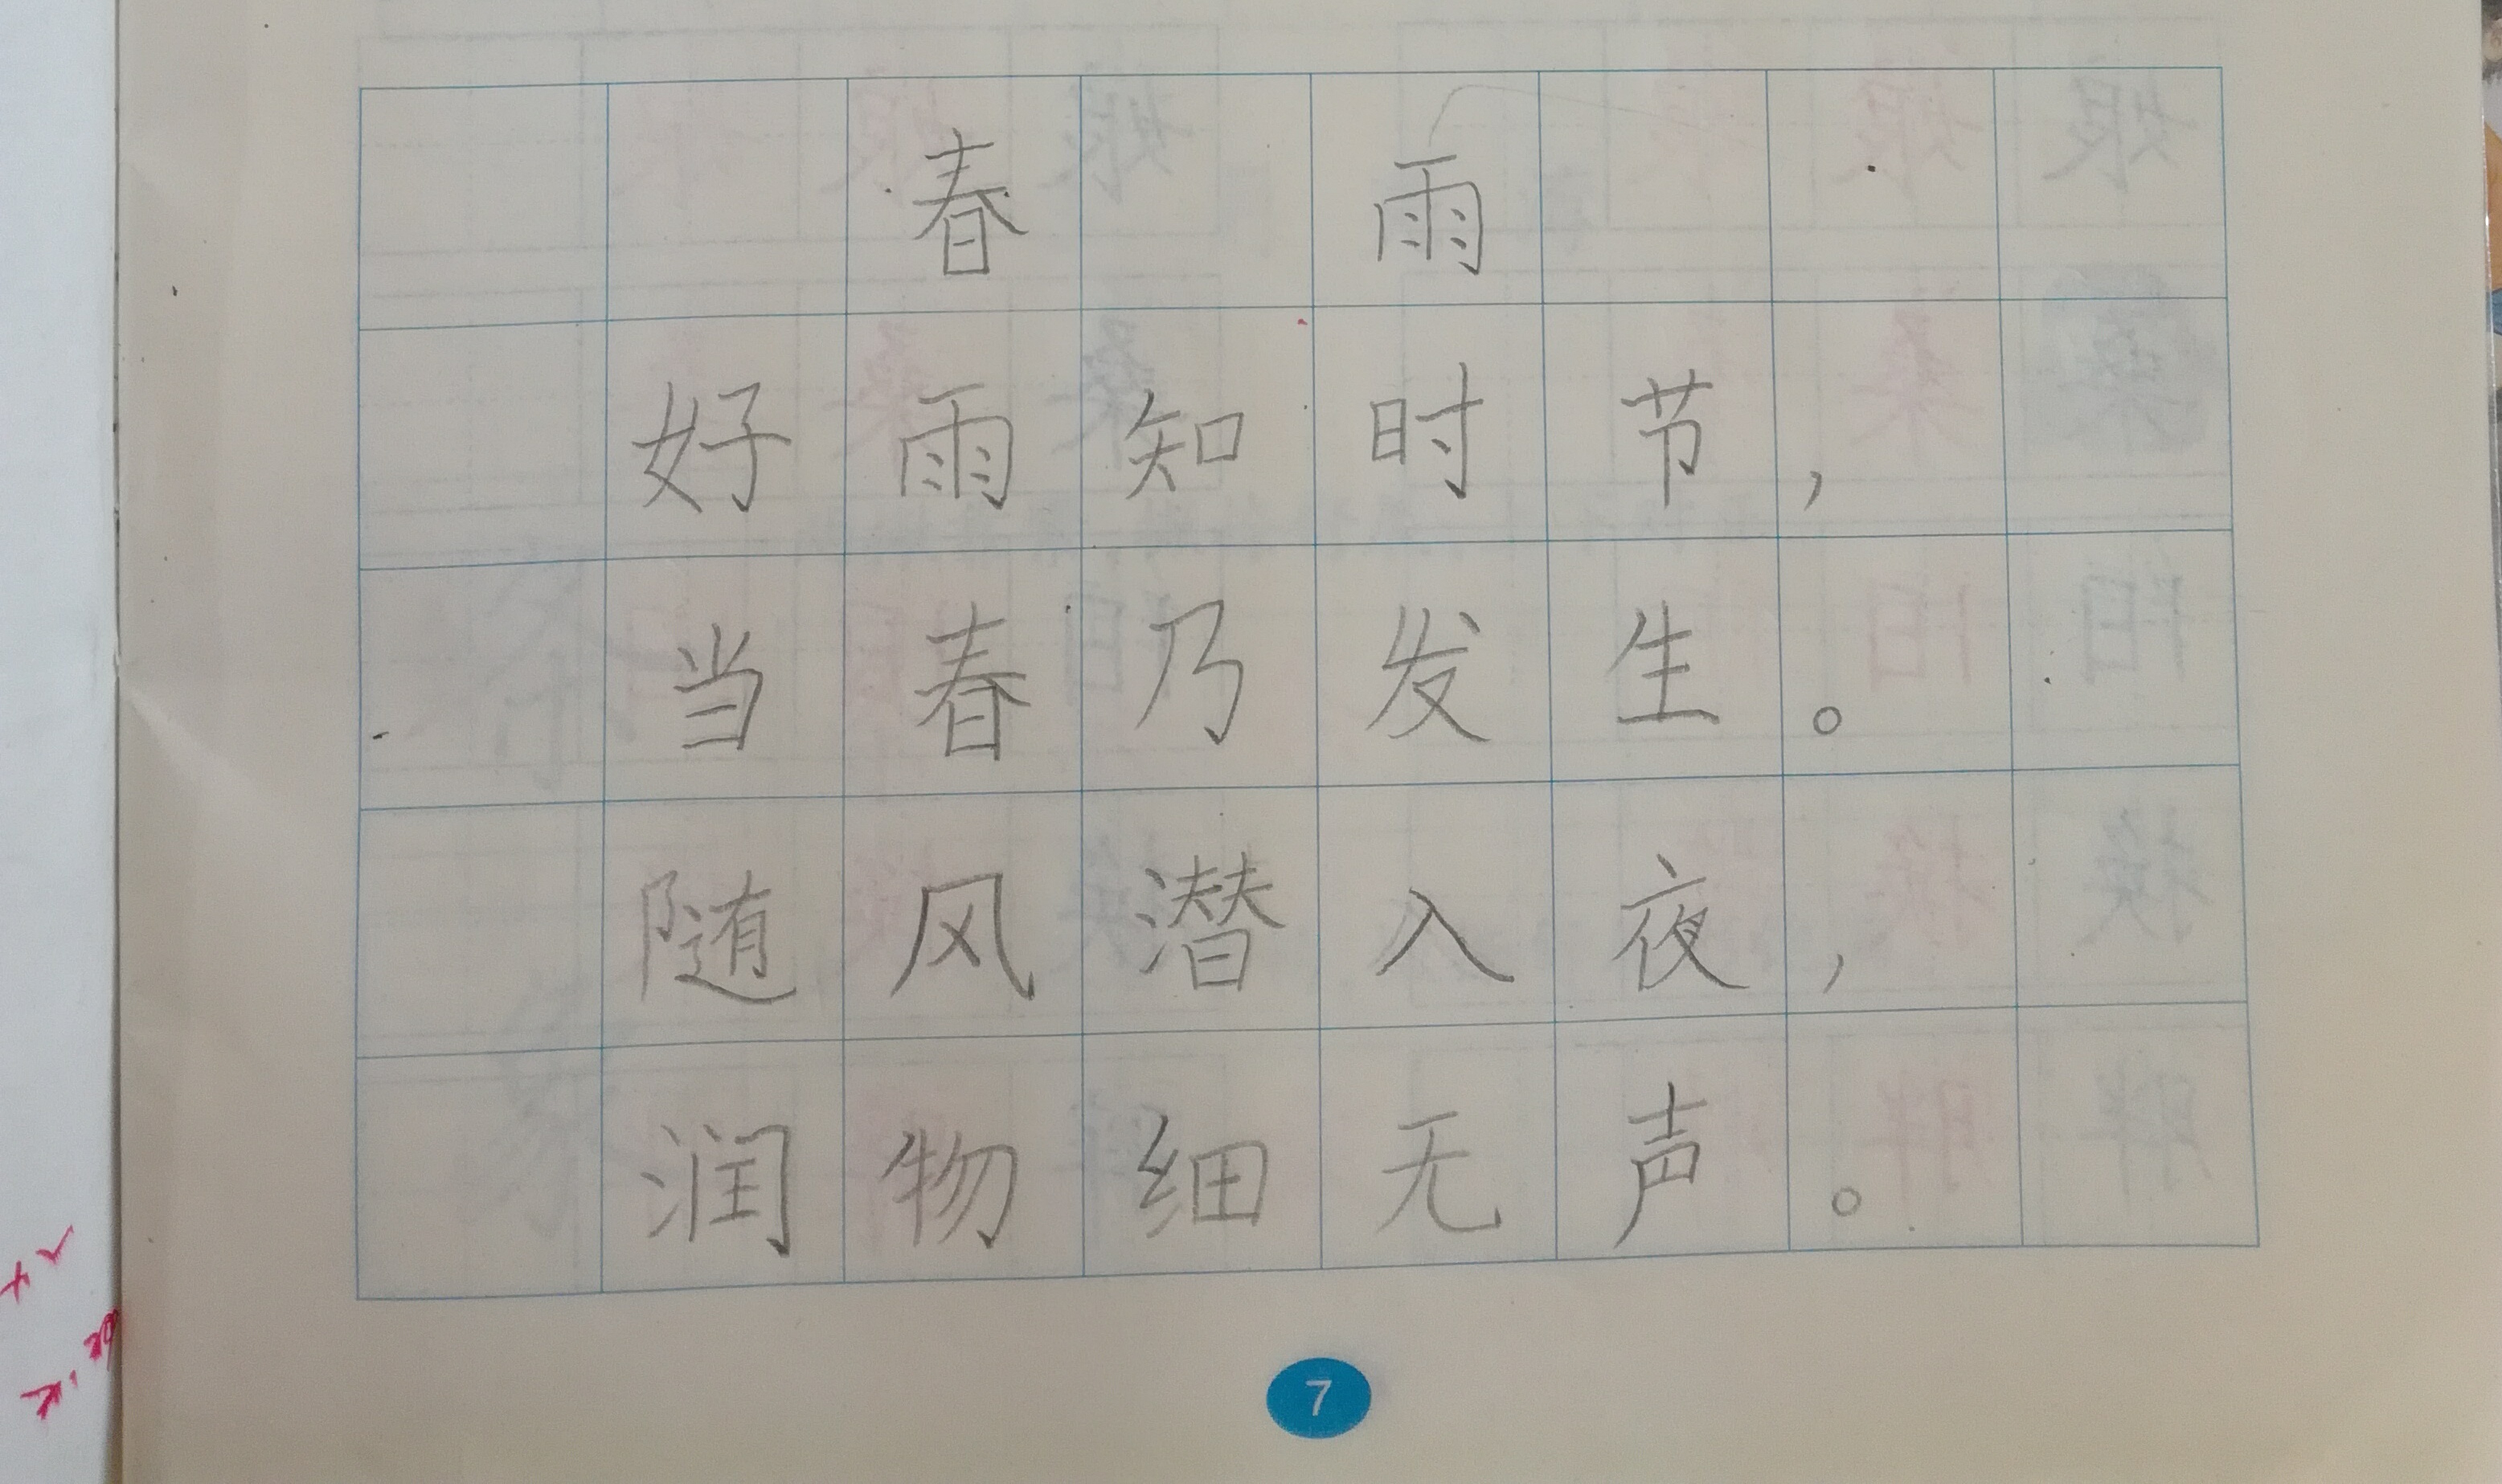 春 雨
好雨知时节，
当春乃发生。
随风潜入夜，
润物细无声。
7